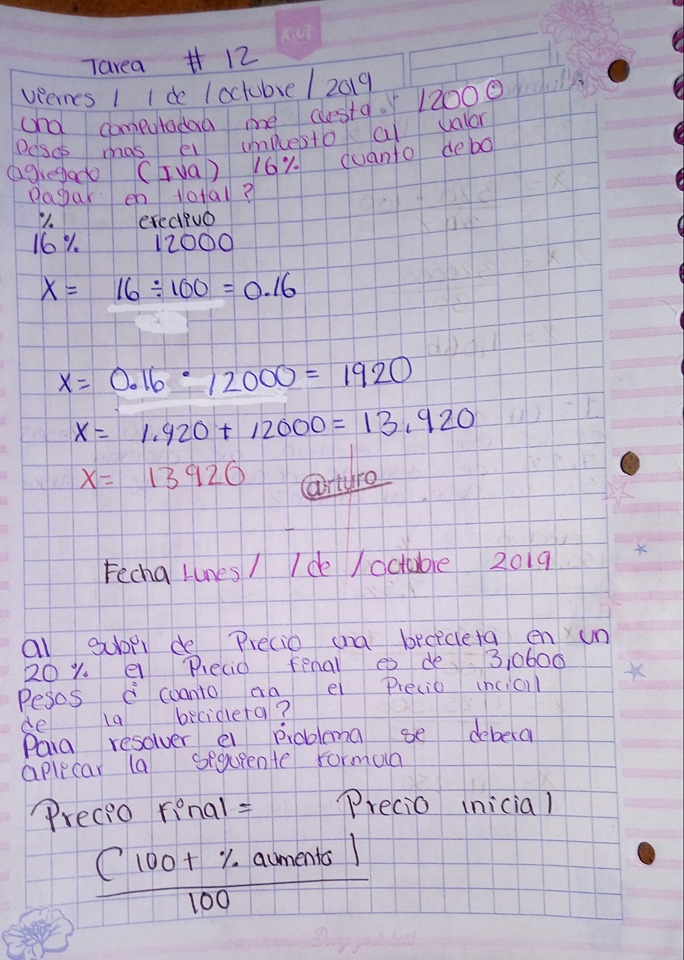 Kiut
Tarea # 12
Viernes / 1 de / octubre / 2019
una computadora me cuesta 12000
Pesos mas el impuesto al valor
agregado (Iva) 16% cuanto debo
Pagar en total?
% efectivo
16% 12000
X = 16 ÷ 100 = 0.16
X = 0.16 · 12000 = 1920
X = 1.920 + 12000 = 13.920
X = 13920 @rturo
Fecha Lunes / 1 de / octubre 2019
al subir de Precio una bicicleta en un
20% el Precio final es de 3,0600
Pesos ¿ cuanto era el Precio
de la bicicleta?
Para resolver el Problema se debera
aplicar la siguiente formula
Precio final = Precio inicial
(100 + % aumento)
100